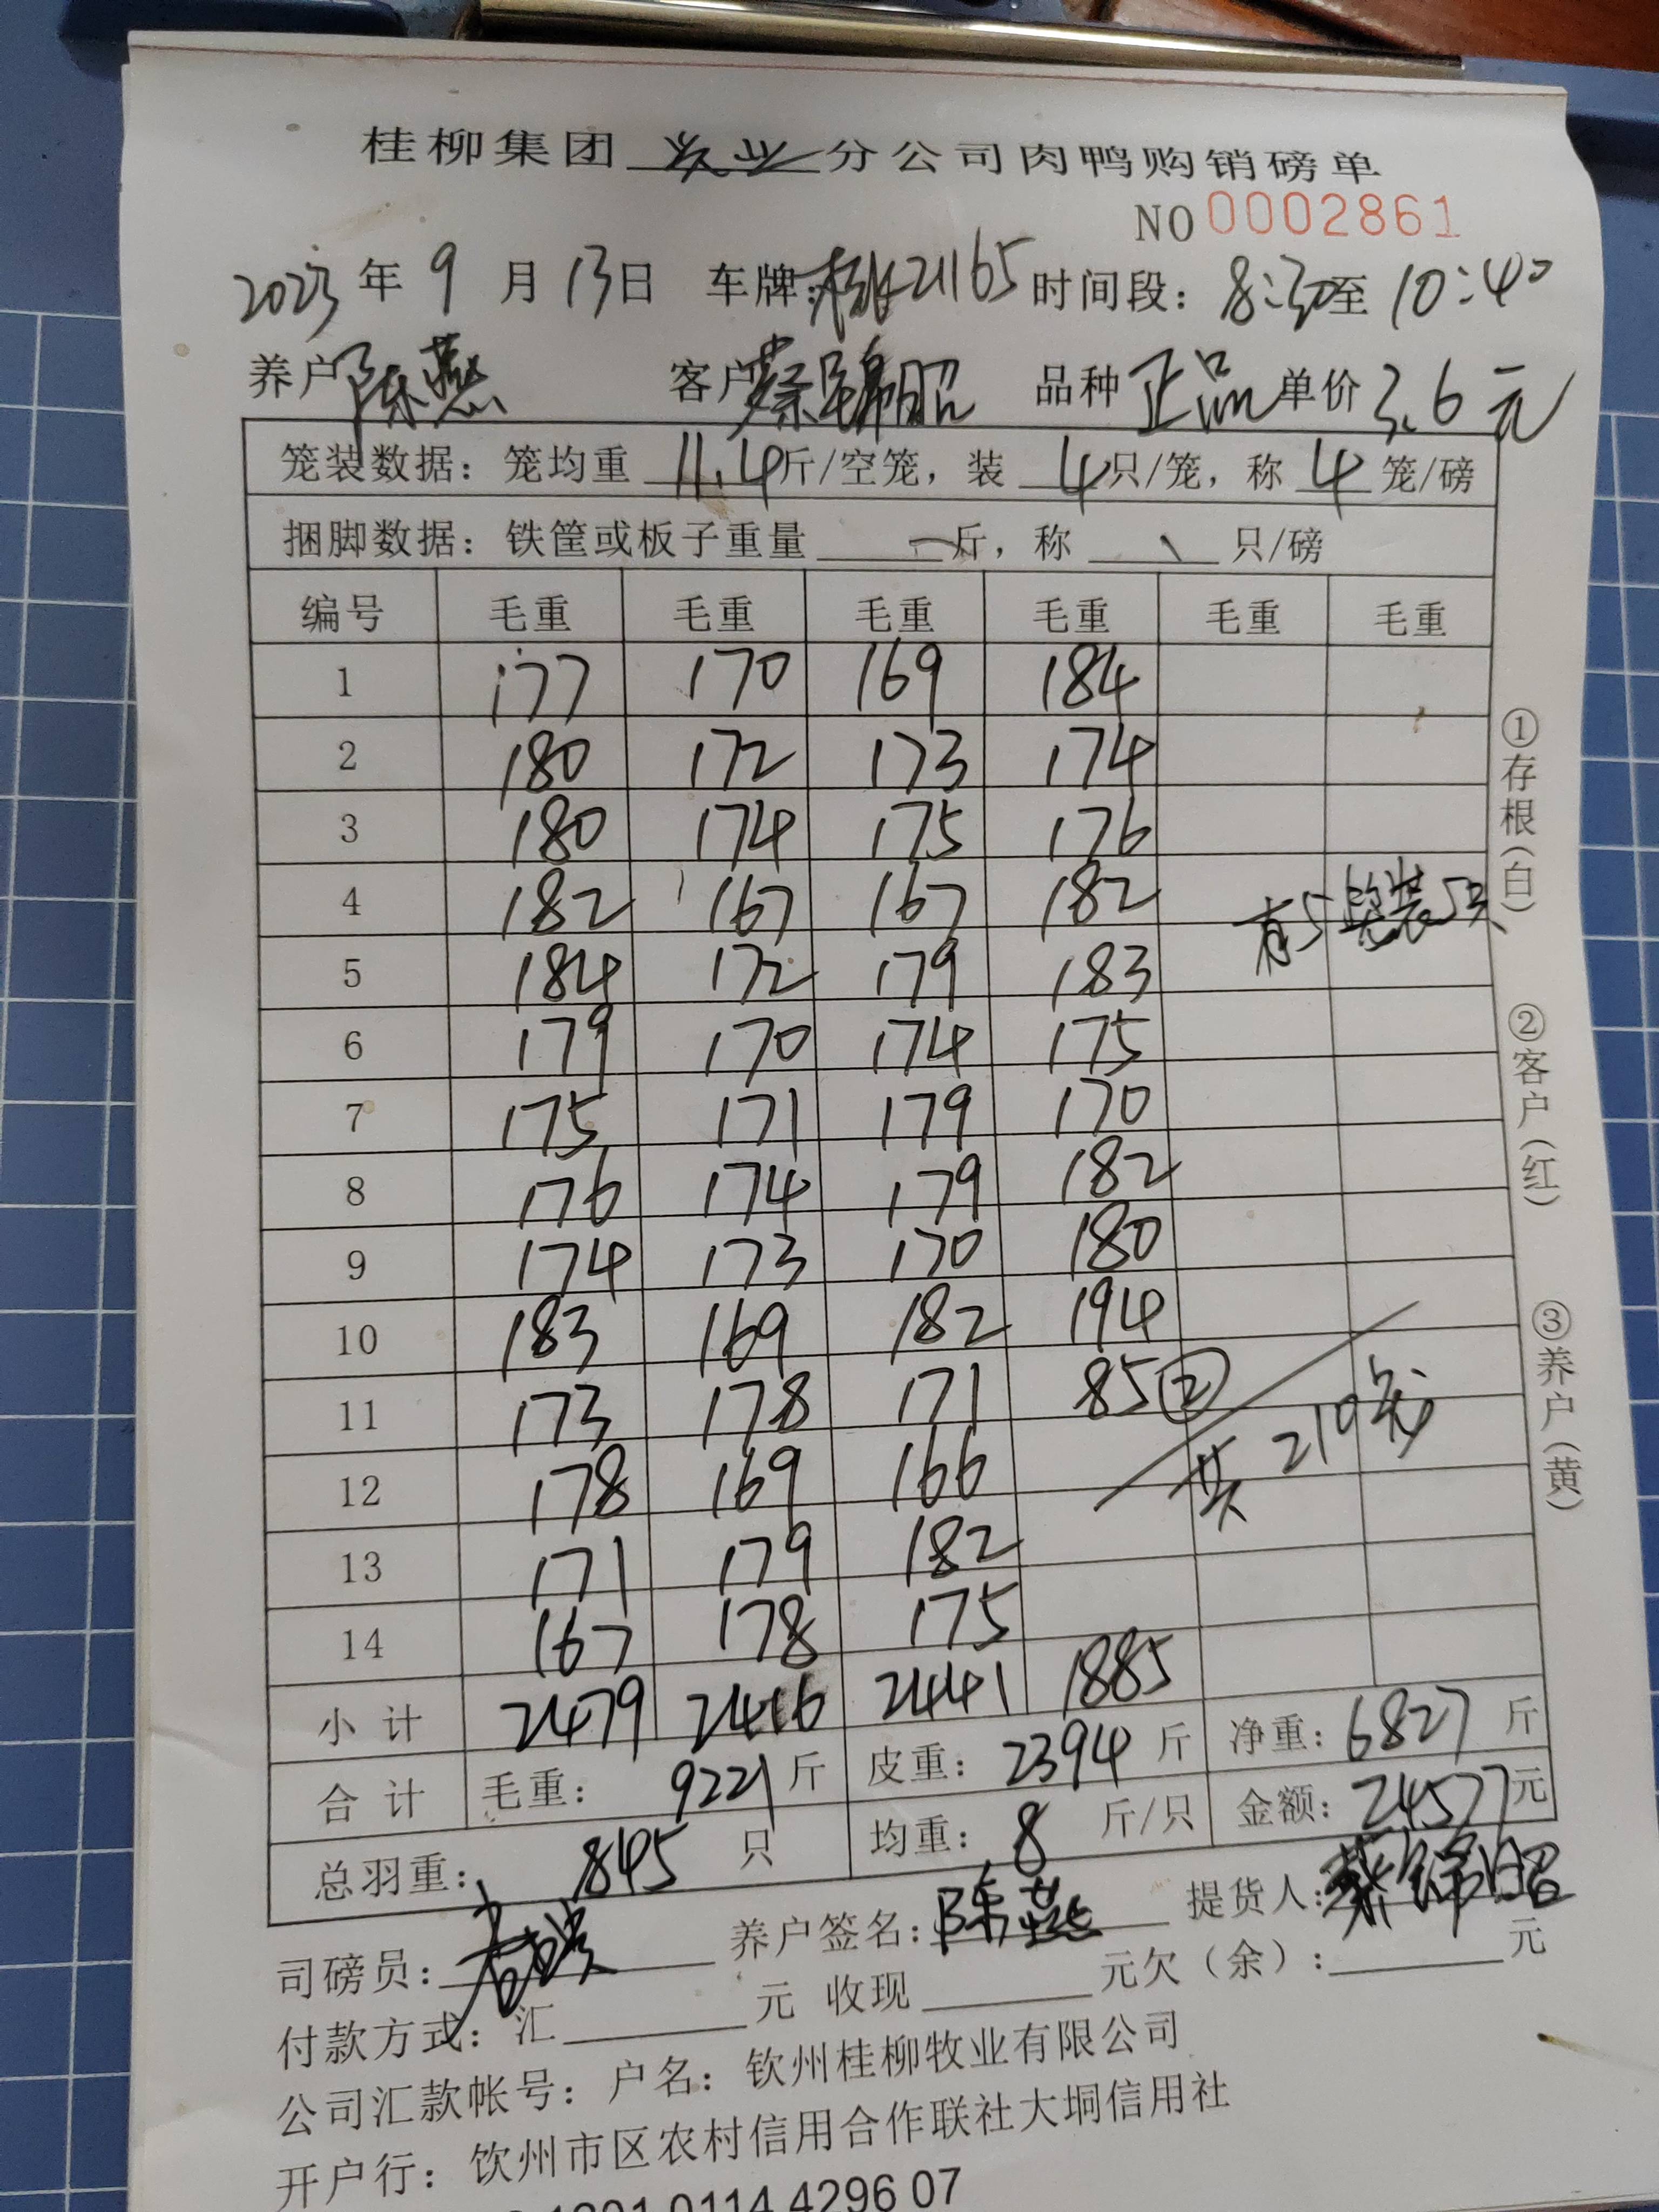 桂柳集团 分公司肉鸭购销磅单
NO 0002861
2023年9月13日 车牌: 21165 时间段: 8:30至10:40
养户 陈燕 客户 蔡锦昭 品种 正品 单价 3.6元
笼装数据: 笼均重 11.4斤/空笼, 装 4只/笼, 称 4 笼/磅
捆脚数据: 铁筐或板子重量 一斤, 称 、 只/磅
编号 毛重 毛重 毛重 毛重 毛重 毛重
1 177 170 169 184
2 180 172 173 174
3 180 174 175 176
4 182 167 167 182
有5笼装5只
5 184 172 179 183
6 179 170 174 175
7 175 171 179 170
8 176 174 179 182
9 174 173 170 180
10 183 169 182 194
11 173 178 171 85②
共210笼
12 178 169 166
13 171 179 182
14 167 178 175
小计 2479 2416 2441 1885
合计 毛重: 9221斤 皮重: 2394斤 净重: 6827斤
总羽重: 845只 均重: 8斤/只 金额: 24577元
司磅员: 养户签名: 陈燕 提货人: 蔡锦昭
付款方式: 汇 元 收现 元欠(余): 元
公司汇款帐号: 户名: 钦州桂柳牧业有限公司
开户行: 钦州市区农村信用合作联社大垌信用社
0114 4296 07
①存根(白)
②客户(红)
③养户(黄)